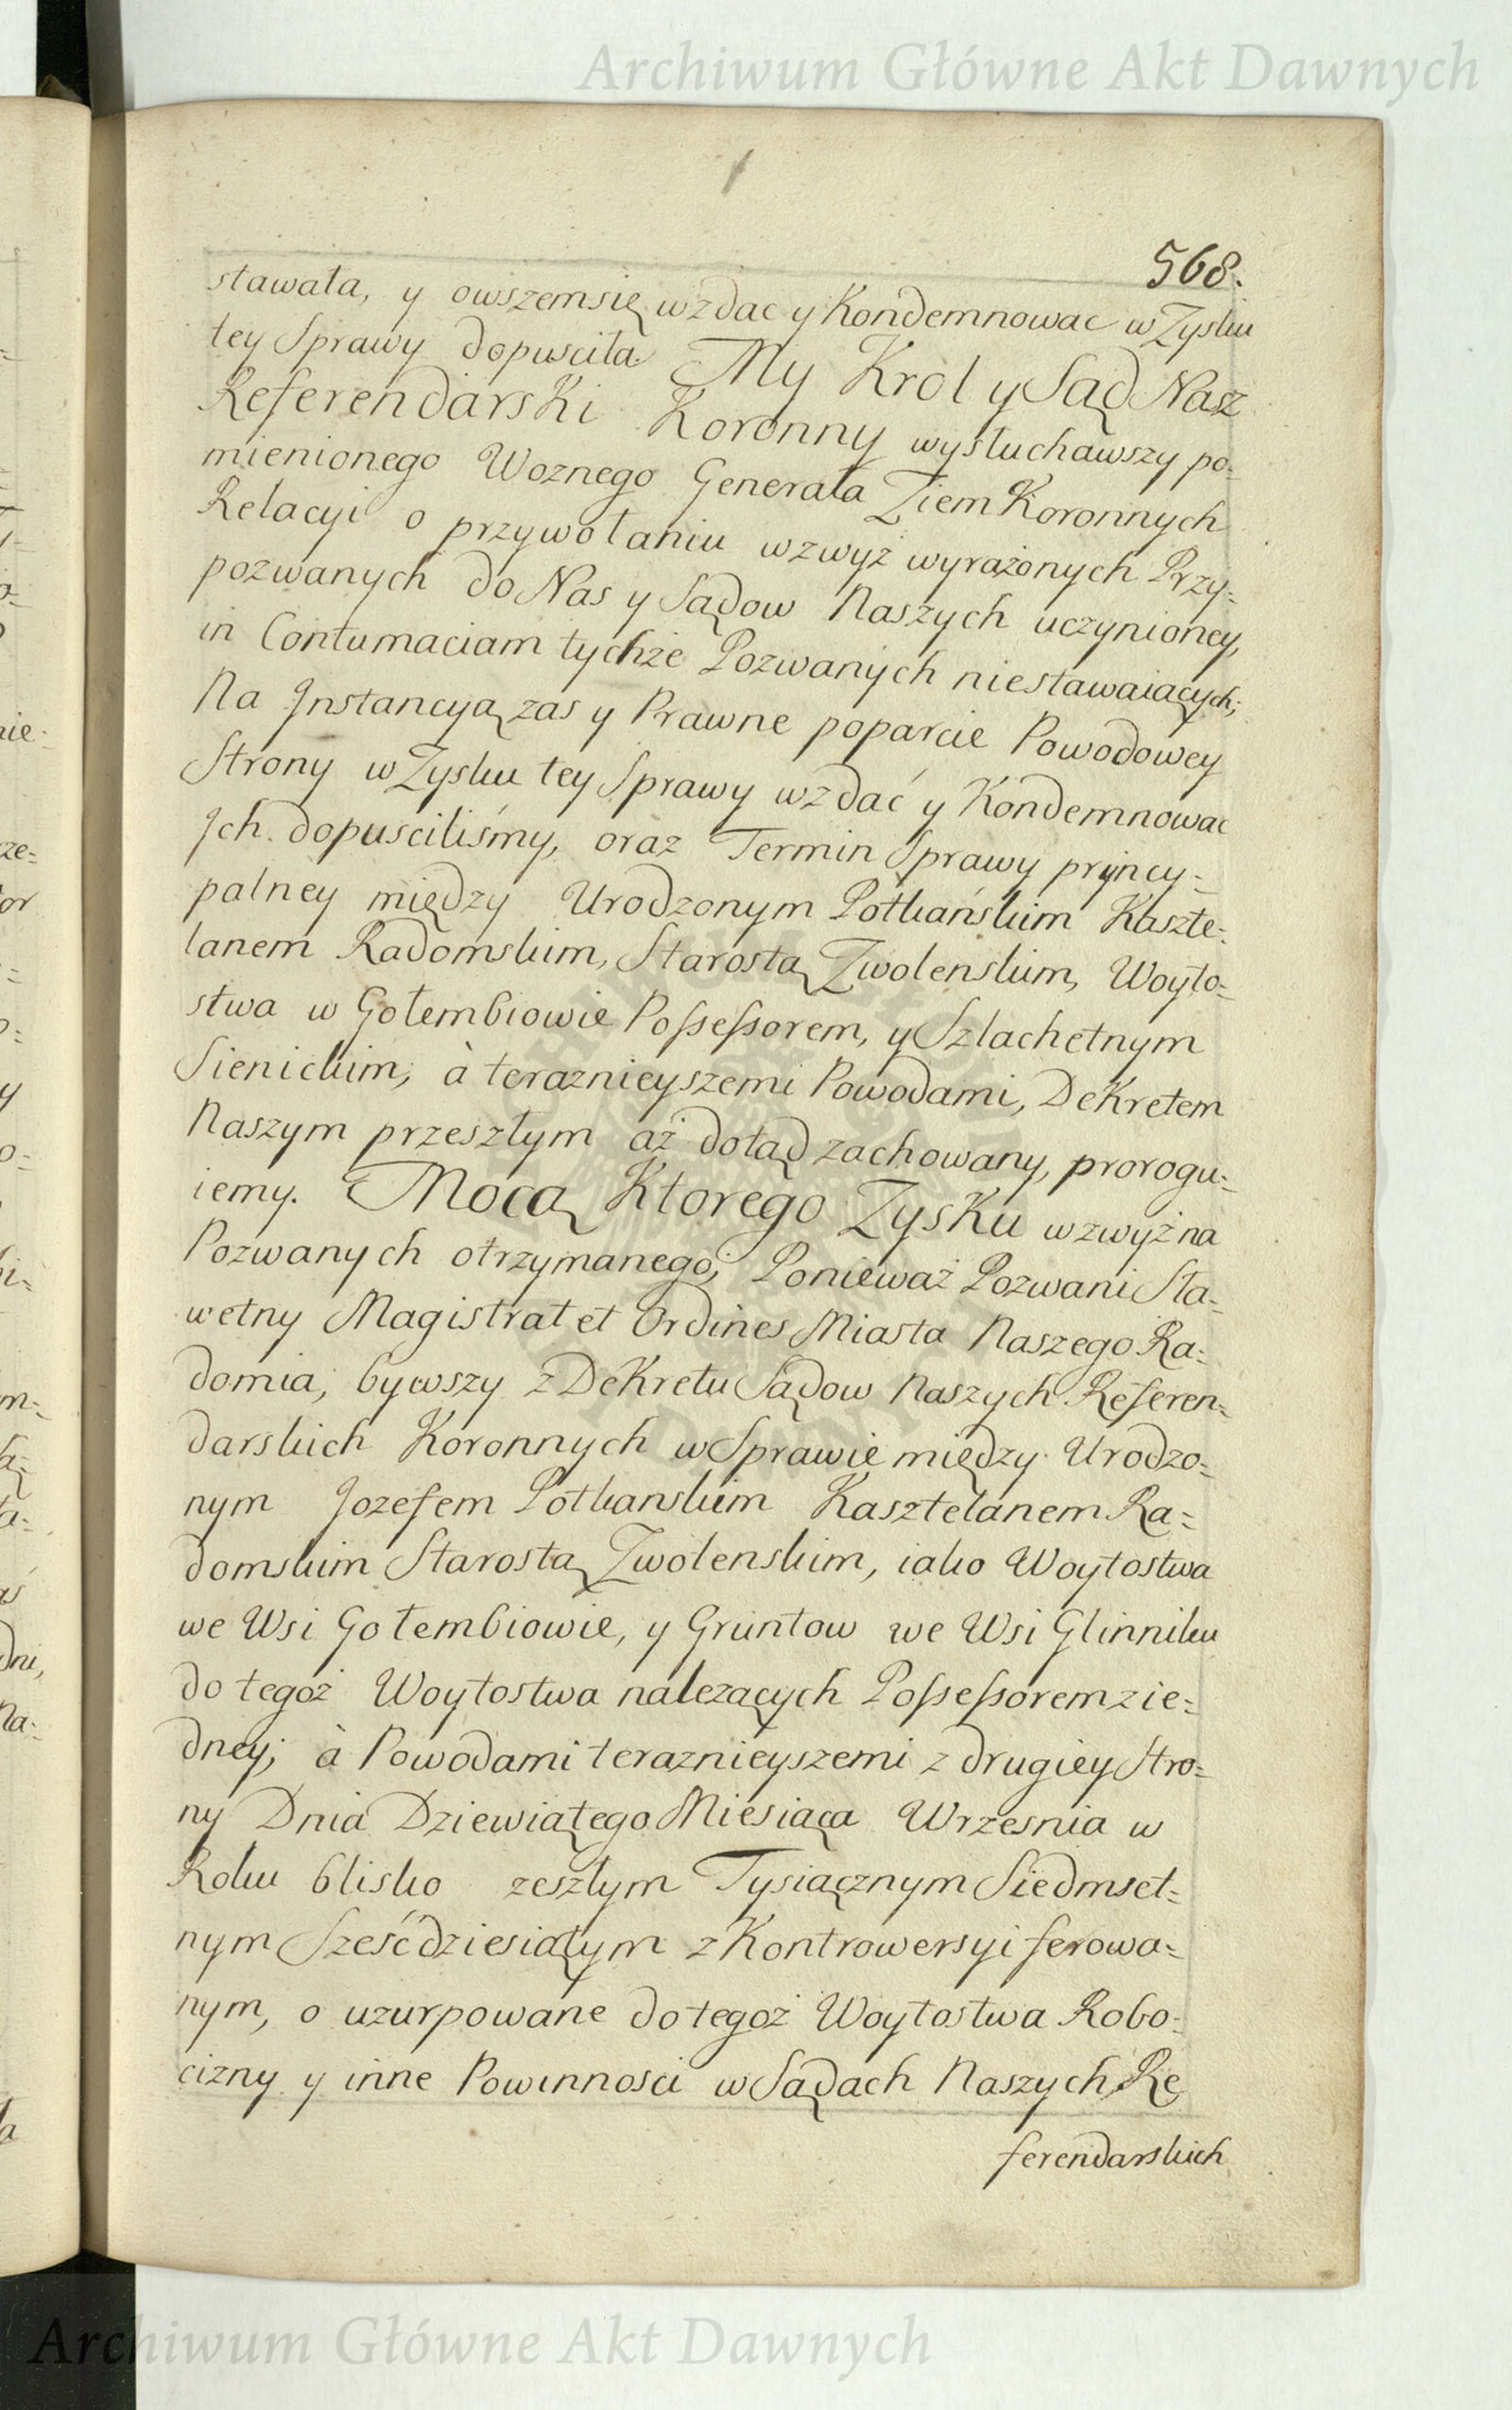 Archiwum Główne Akt Dawnych
568.
stawała, y owszem się wzdac y Kondemnowac w Zysku
tey Sprawy dopusciła. My Krol y Sąd Nasz
Referendarski Koronny wysłuchawszy po=
mienionego Woznego Generała Ziem Koronnych
Relacyi o przywołaniu wzwyż wyrażonych Przy=
pozwanych do Nas y Sądow Naszych uczynioney,
in Contumaciam tychże Pozwanych niestawaiących;
Na Jnstancyą zas y Prawne poparcie Powodowey
Strony w Zysku tey Sprawy wzdać y Kondemnowac
Jch dopusciliśmy, oraz Termin Sprawy pryncy=
palney między Urodzonym Potkańskim Kaszte=
lanem Radomskim, Starostą Zwolenskim, Woyto=
stwa w Gołembiowie Possessorem, y Szlachetnym
Sienickim, à teraznieyszemi Powodami, Dekretem
Naszym przeszłym aż dotąd zachowany, prorogu=
iemy. Mocą Ktorego Zysku wzwyż na
Pozwanych otrzymanego; Ponieważ Pozwani Sła=
wetny Magistrat et Ordines Miasta Naszego Ra=
domia, bywszy z Dekretu Sądow Naszych Referen=
darskich Koronnych w Sprawie między Urodzo=
nym Jozefem Potkanskim Kasztelanem Ra=
domskim Starostą Zwolenskim, iako Woytostwa
we Wsi Gołembiowie, y Gruntow we Wsi Glinniku
do tegoż Woytostwa nalezących Possessorem z ie=
dney; à Powodami teraznieyszemi z drugiey Stro=
ny Dnia Dziewiątego Miesiąca Wrzesnia w
Roku blisko zeszłym Tysiącznym Siedmset=
nym Sześćdziesiątym z Kontrowersyi ferowa=
nym, o uzurpowane do tegoż Woytostwa Robo=
cizny y inne Powinnosci w Sądach Naszych Re
ferendarskich
Archiwum Główne Akt Dawnych